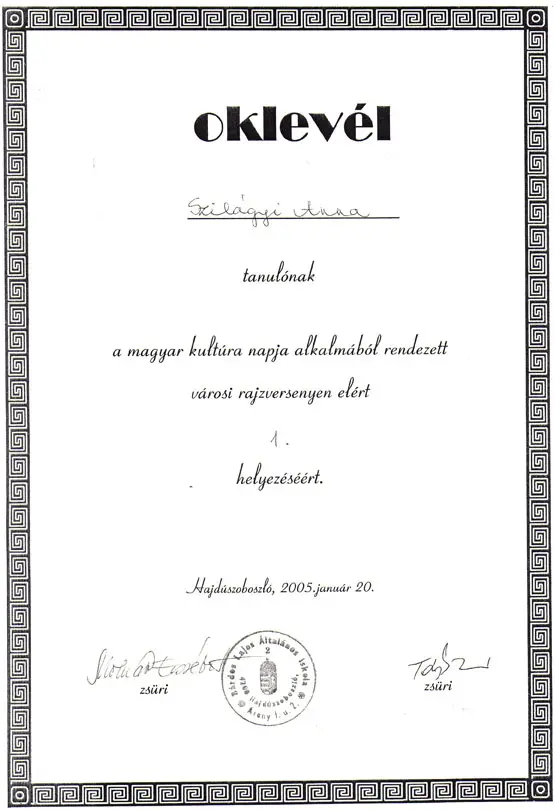 oklevél
Szilágyi Anna
tanulónak
a magyar kultúra napja alkalmából rendezett
városi rajzversenyen elért
1.
helyezéséért.
Hajdúszoboszló, 2005.január 20.
zsüri
Bárdos Lajos Általános Iskola
2
4200 Hajdúszoboszló,
Arany J. u. 2.
zsüri